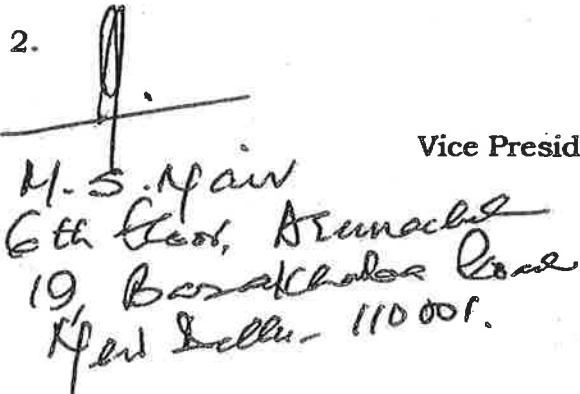 2.
Vice Presid
M. S. Nair
6th floor, Arunachal
19, Barakhamba Road
New Delhi - 110001.